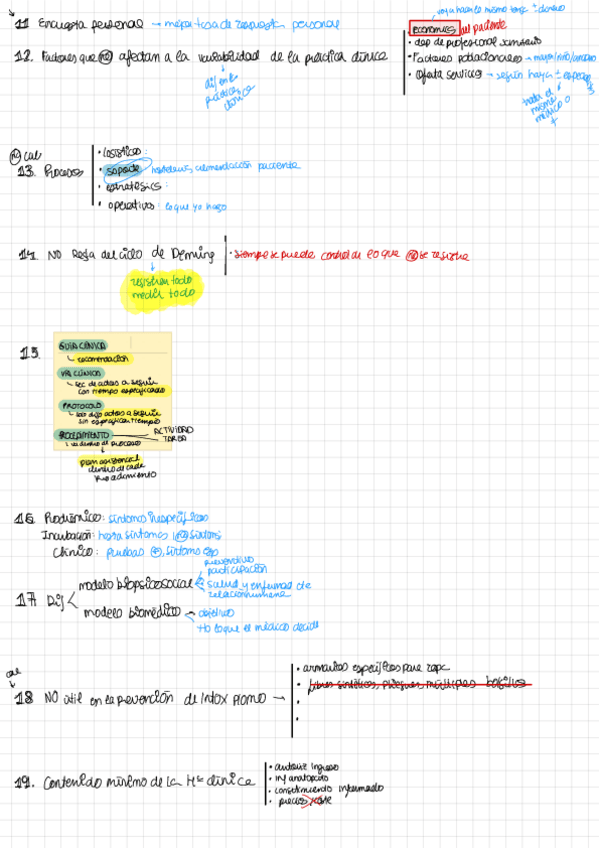 11. Encuesta personal → mejor tasa de respuesta personal
12. Factores que NO afectan a la variabilidad de la práctica clínica
dif en la práctica clínica
voy a hacer lo mismo tenga ± dinero
económics del paciente
• dep de profesional sanitario
• Factores poblacionales → mayor/niño/anciano
• Oferta servicios → según haya ± especialistas
trata el mismo médico o +
NO cae
13. Procesos
• Logísticos:
• soporte hostelería, alimentación paciente
• estratégics:
• operativos: lo que yo hago
14. NO Regla del ciclo de Deming
• siempre se puede controlar lo que NO se registre
registren todo
medir todo
15.
GUÍA CLÍNICA
↳ recomendación
VÍA CLÍNICA
↳ sec de actos a seguir
con tiempo especificado
PROTOCOLO
↳ solo dijo actos a seguir
sin especificar tiempo
PROCEDIMIENTO
ACTIVIDAD
TAREA
↳ va dentro de proceso
plan asistencial
dentro de cada
procedimiento
16. Prodrómico: síntomas inespecíficos
Incubación: hasta síntomas | NO síntoms
Clínico: Pruebas +, síntomas esp
17. Dif <
modelo biopsicosocial
preventivo
participación
salud y enfermed de
relación humana
modelo biomédico → objetivo
→ to lo que el médico decide
cae
18 NO útil en la prevención de intox plomo →
• armarios específicos para ropa
• fibras sintéticas, pliegues, múltiples bolsillos
•
•
19. Contenido mínimo de la Hª clínica
• autoriz ingreso
• inf anatopato
• consetimiento informado
• precios coste